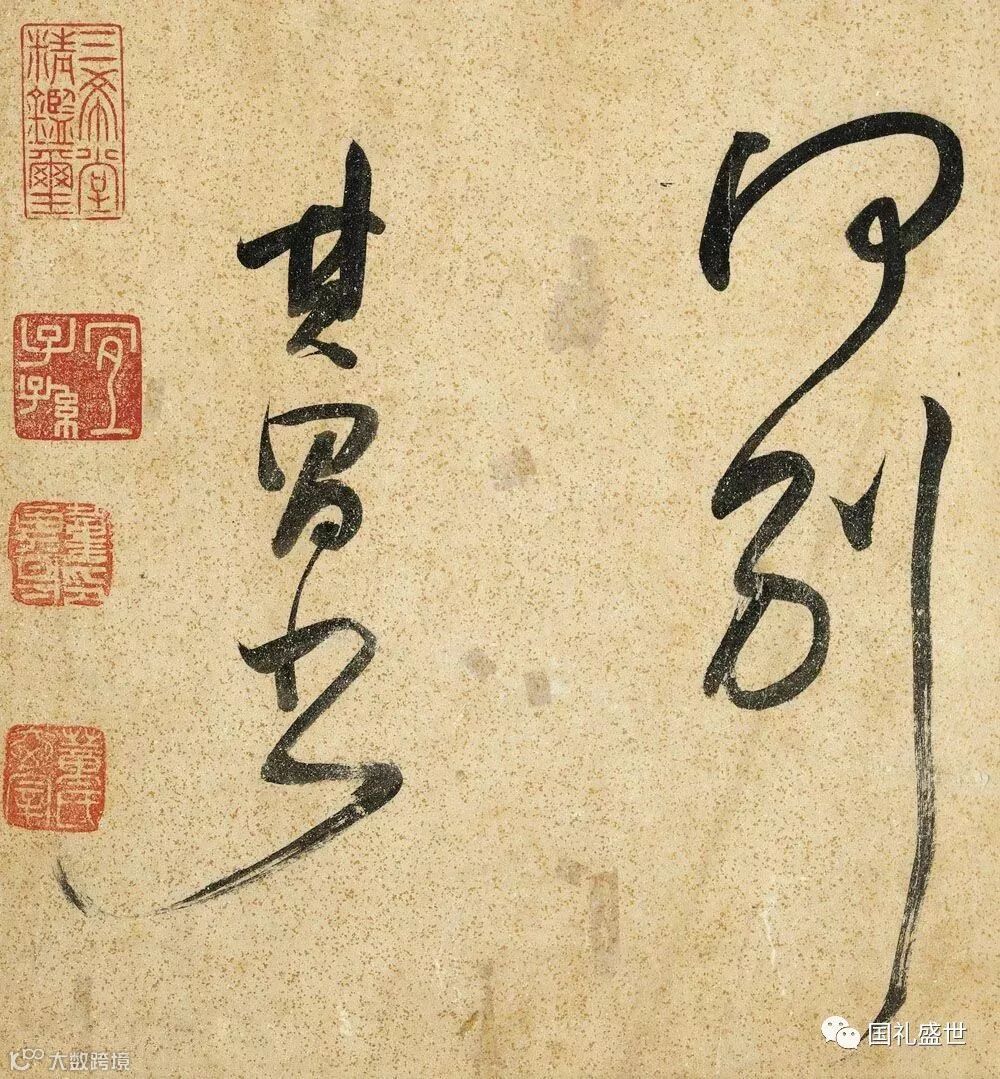 别
其昌书
三希堂
精鑑璽
宜
子孫
国礼盛世
大数跨境